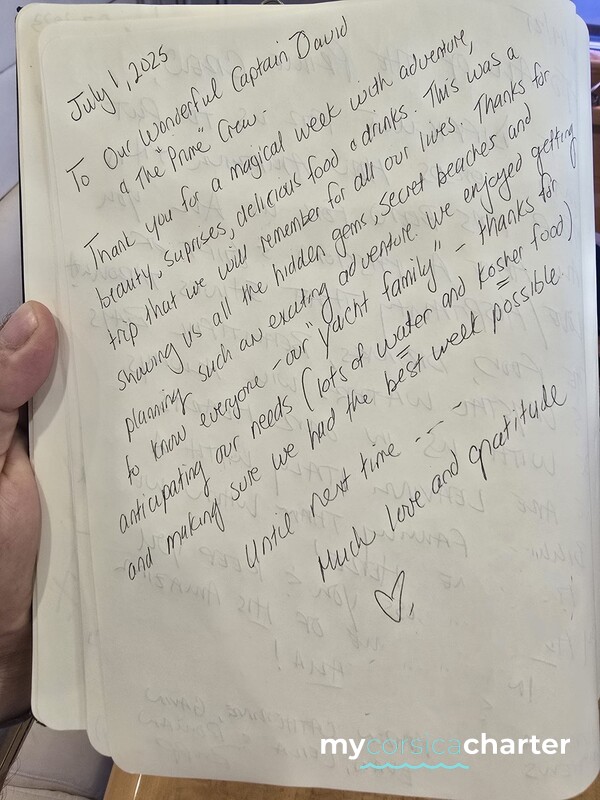 July 1, 2025
To Our Wonderful Captain David
& The "Prime" Crew.
Thank you for a magical week with adventure,
beauty, suprises, delicious food & drinks. This was a
trip that we will remember for all our lives. Thanks for
showing us all the hidden gems, secret beaches and
planning such an exciting adventure. We enjoyed getting
to know everyone - our "yacht family" - thanks for
anticipating our needs (lots of water and kosher food)
and making sure we had the best week possible
Until next time ----
Much love and gratitude
♡.
mycorsicacharter